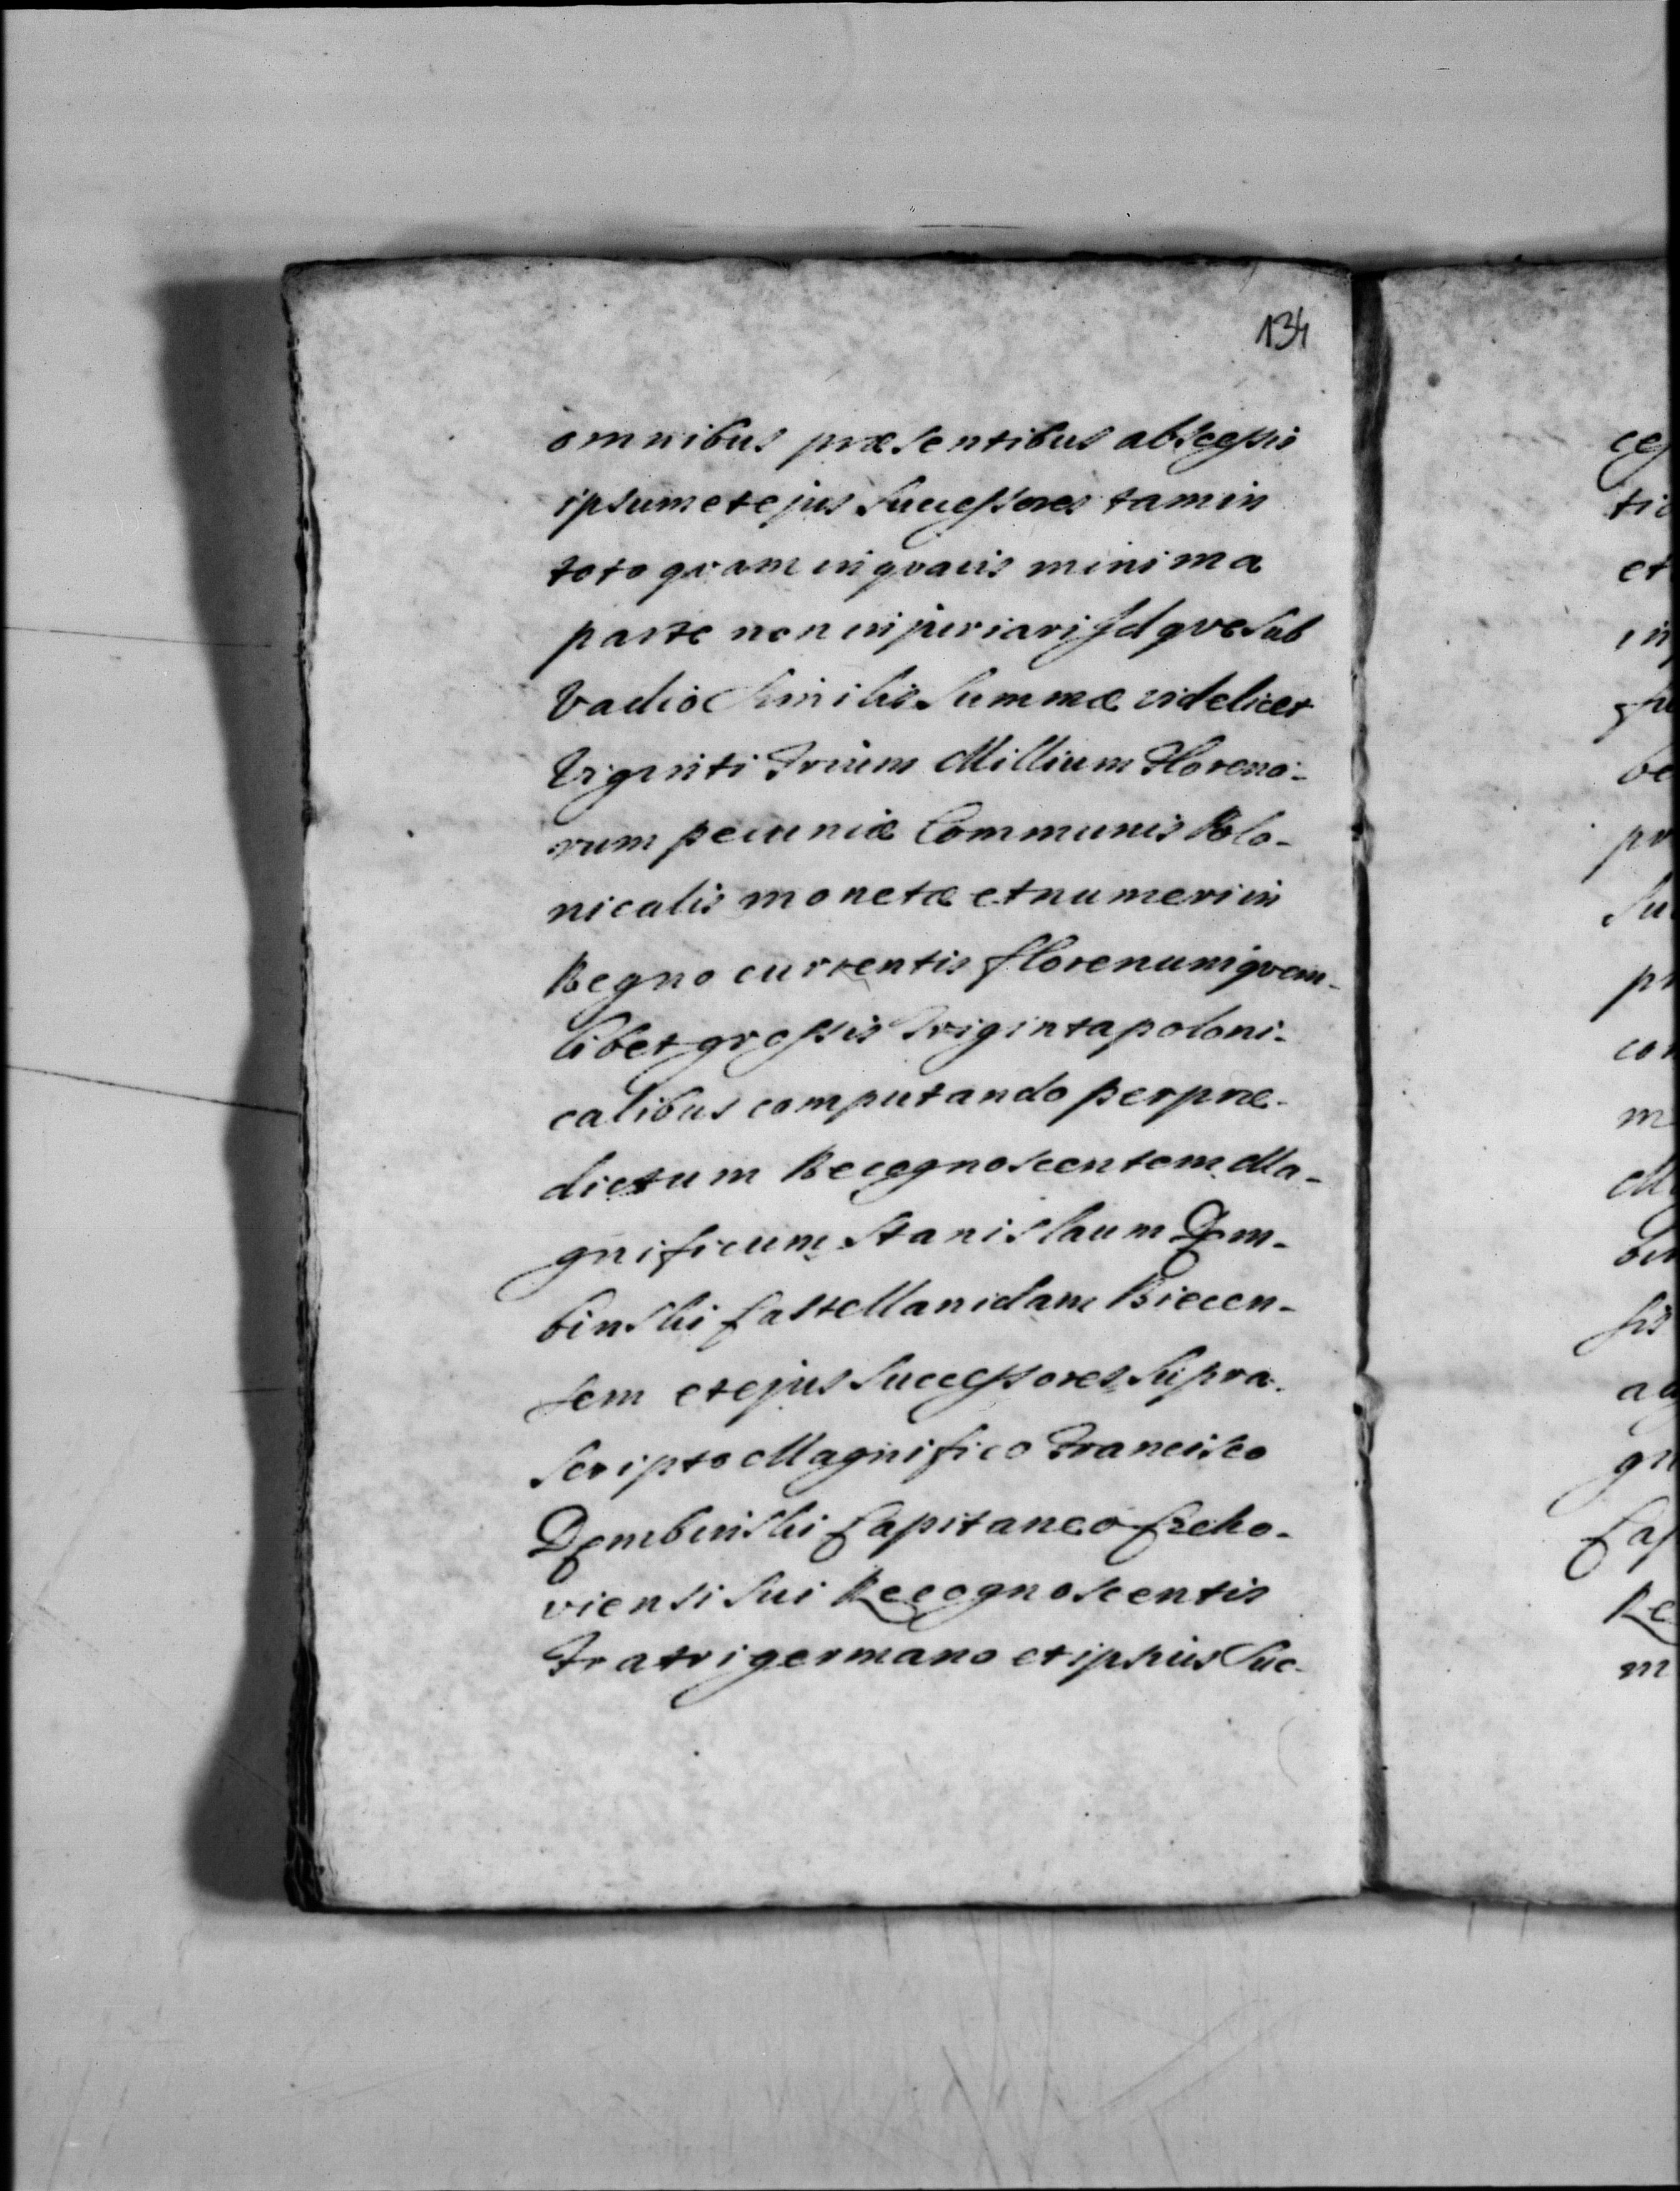 134
omnibus præsentibus abscessis
ipsum et ejus Successores tam in
toto qvam in qvavis minima
parte non injuriari Idqve sub
Vadio Similis Summæ videlicet
Viginti Trium Millium Floreno-
rum pecuniæ Communis Polo-
nicalis monetæ et numeri in
Regno currentis florenum qvem-
libet grossis Triginta poloni-
calibus computando per præ-
dictum Recognoscentem Ma-
gnificum Stanislaum Dem-
binski Castellanidam Biecen-
sem et ejus Successores Supra-
scripto Magnifico Francisco
Dembinski Capitaneo
viensi sui Recognoscentis
Fratri germano et ipsius Suc-